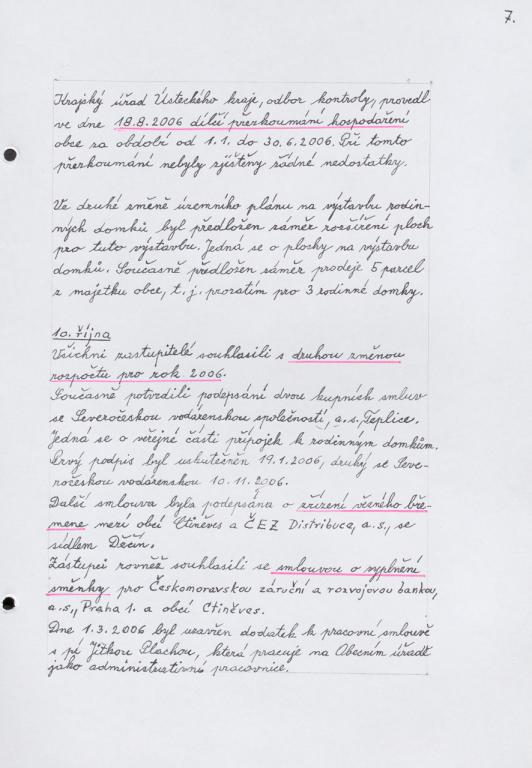 7.
Krajský úřad Ústeckého kraje, odbor kontroly, provedl
ve dne 18.8.2006 dílčí přezkoumání hospodaření
obce za období od 1.1. do 30.6.2006. Při tomto
přezkoumání nebyly zjištěny žádné nedostatky.
Ve druhé směně územního plánu na výstavbu rodin-
ných domků byl předložen záměr rozšíření ploch
pro tuto výstavbu. Jedná se o plochy na výstavbu
domků. Současně předložen záměr prodeje 5 parcel
z majetku obce, t.j. prozatím pro 3 rodinné domky.
10. října
Všichni zastupitelé souhlasili s druhou změnou
rozpočtu pro rok 2006.
Současně potvrdili podepsání dvou kupních smluv
se Severočeskou vodárenskou společností, a.s., Teplice.
Jedná se o veřejné části přípojek k rodinným domkům.
Prvý podpis byl uskutečněn 19.1.2006, druhý se Seve-
ročeskou vodárenskou 10.11.2006.
Další smlouva byla podepsána o zřízení věcného bře-
mene mezi obcí Ctiněves a ČEZ Distribuce, a.s., se
sídlem Děčín.
Zástupci rovněž souhlasili se smlouvou o vyplnění
směnky pro Českomoravskou záruční a rozvojovou banku,
a.s., Praha 1. a obcí Ctiněves.
Dne 1.3.2006 byl uzavřen dodatek k pracovní smlouvě
s pí Jitkou Plachou, která pracuje na Obecním úřadě
jako administrativní pracovnice.